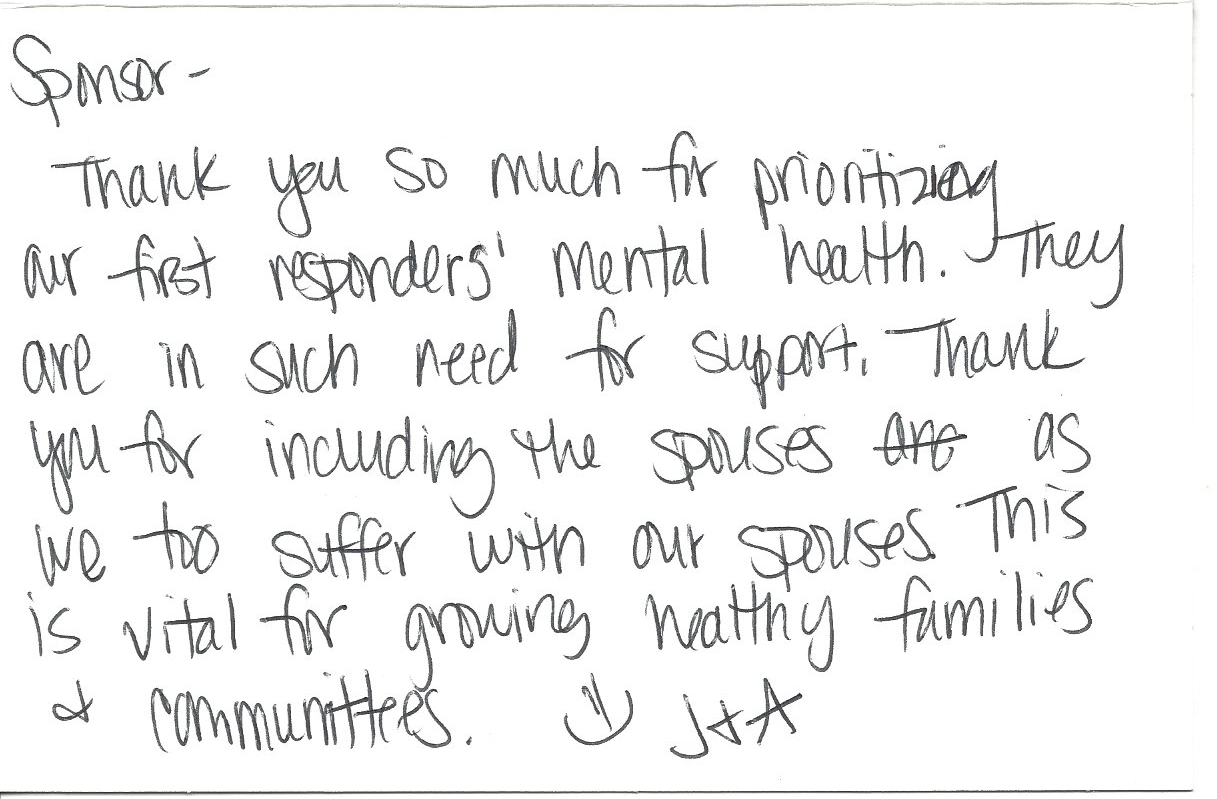 Sponsor -
Thank you so much for prioritizing
our first responders' mental health. They
are in such need for support. Thank
you for including the spouses are as
we too suffer with our spouses. This
is vital for growing healthy families
& communittees. :) J + A